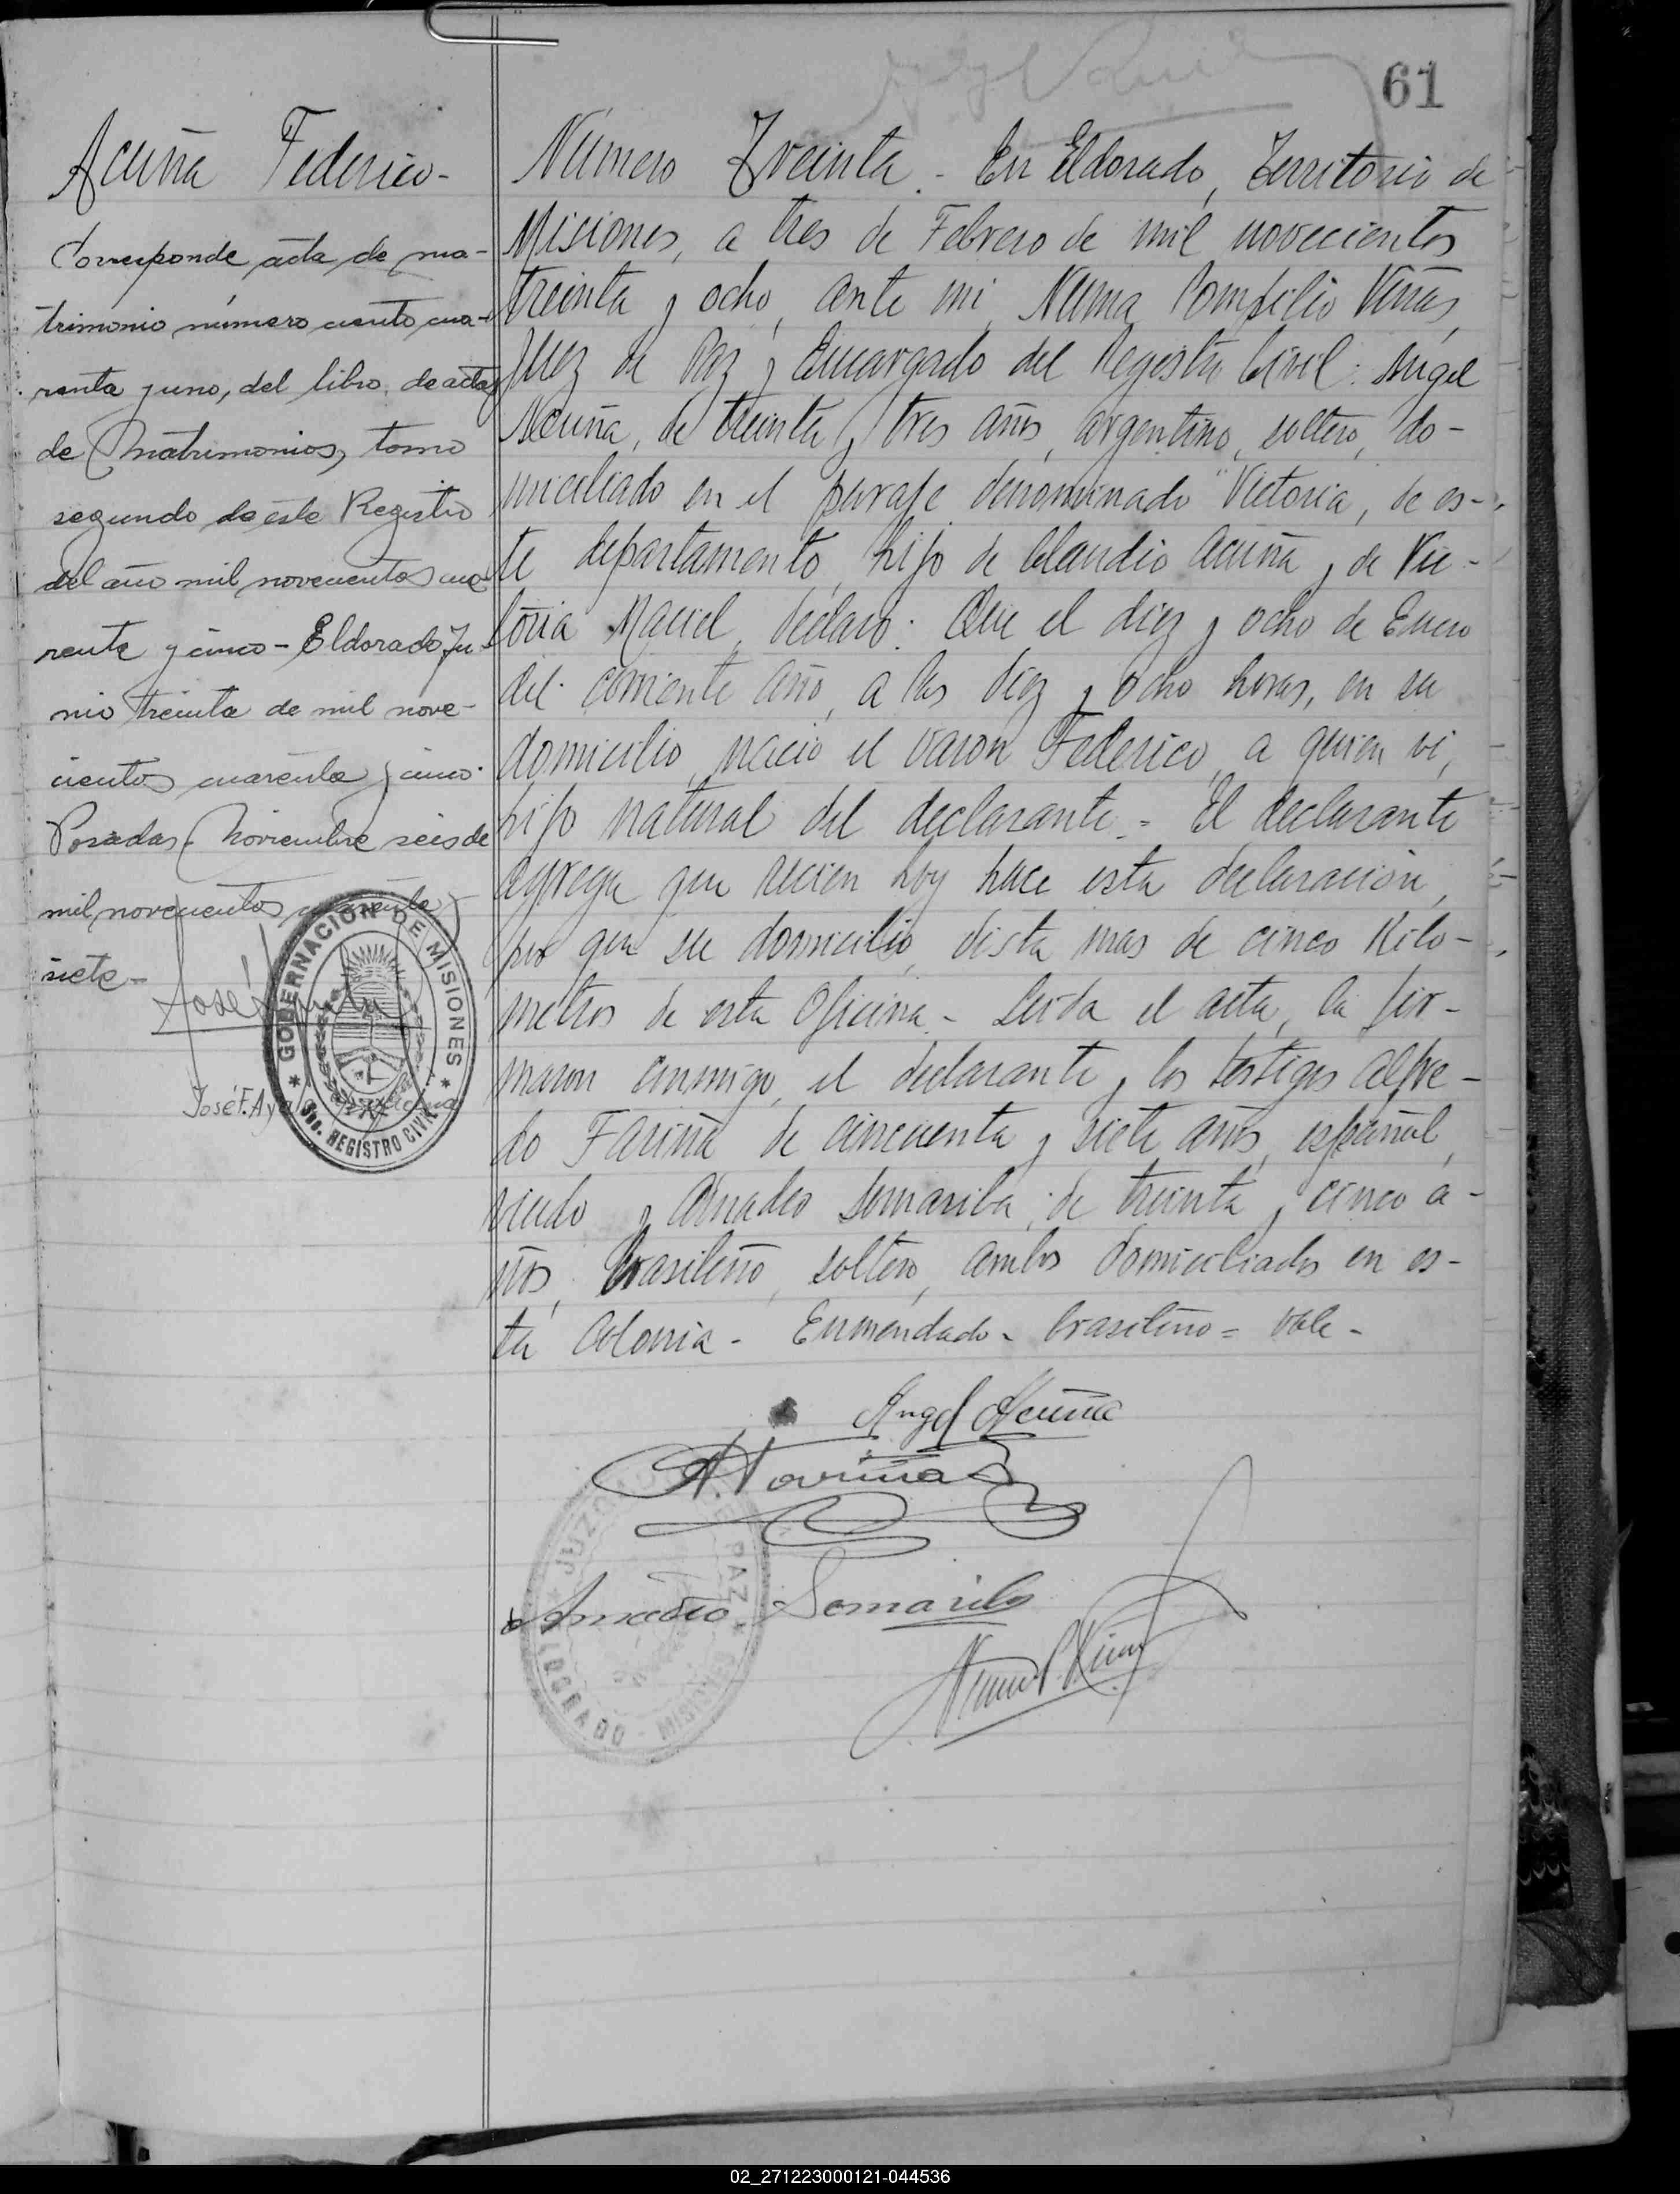 61
Acuña Federico-
Corresponde acta de ma-
trimonio número ciento cua-
renta y uno, del libro de actas
de Matrimonios, tomo
segundo de este Registro
del año mil novecientos cua-
renta y cinco - Eldorado Ju-
nio treinta de mil nove-
cientos cuarenta y cinco.
Posadas, Noviembre seis de
mil novecientos cuarenta y
siete-
José F. Ayala
GOBERNACION DE MISIONES
REGISTRO CIVIL
Número Treinta.- En Eldorado, Territorio de
Misiones, a tres de Febrero de mil novecientos
treinta y ocho, ante mi Numa Pompilio Viñas,
Juez de Paz y Encargado del Registro Civil: Angel
Acuña, de treinta y tres años, argentino, soltero, do-
miciliado en el paraje denominado "Victoria, de es-
te departamento, hijo de Claudio Acuña y de Vic-
toria Maciel, declaro: Que el diez y ocho de Enero
del corriente año, a las diez y ocho horas, en su
domicilio, nació el varon Federico, a quien vi,
hijo natural del declarante.- El declarante
agrega que recien hoy hace esta declaración,
por que su domicilio, dista mas de cinco Kilo-
metros de esta Oficina.- Leida el acta, la fir-
maron conmigo, el declarante y los testigos Alfre-
do Fariña de cincuenta y siete años, español,
viudo y Amadeo Somariba, de treinta y cinco a-
ños, brasileño, soltero, ambos domiciliados en es-
ta Colonia.- Enmendado- brasileño= Vale-
Angel Acuña
A. Fariña
Amadeo Somariba
Numa P. Viñas
JUZGADO DE PAZ
ELDORADO - MISIONES
02_271223000121-044536